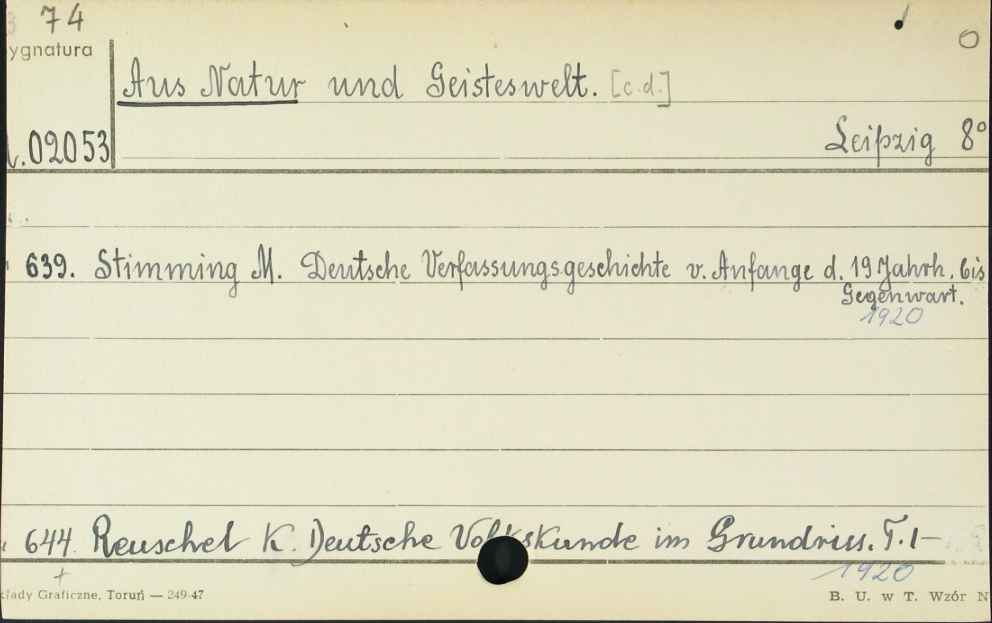 74
ygnatura
Aus Natur und Geisteswelt. [c.d.]
.02053
Leipzig 8°
639. Stimming M. Deutsche Verfassungsgeschichte v. Anfange d. 19 Jahrh. bis
Gegenwart.
1920
644 Reuschel K. Deutsche Volkskunde im Grundriss. T. 1-
1920
łady Graficzne, Toruń — 249-47
B. U. w T. Wzór N